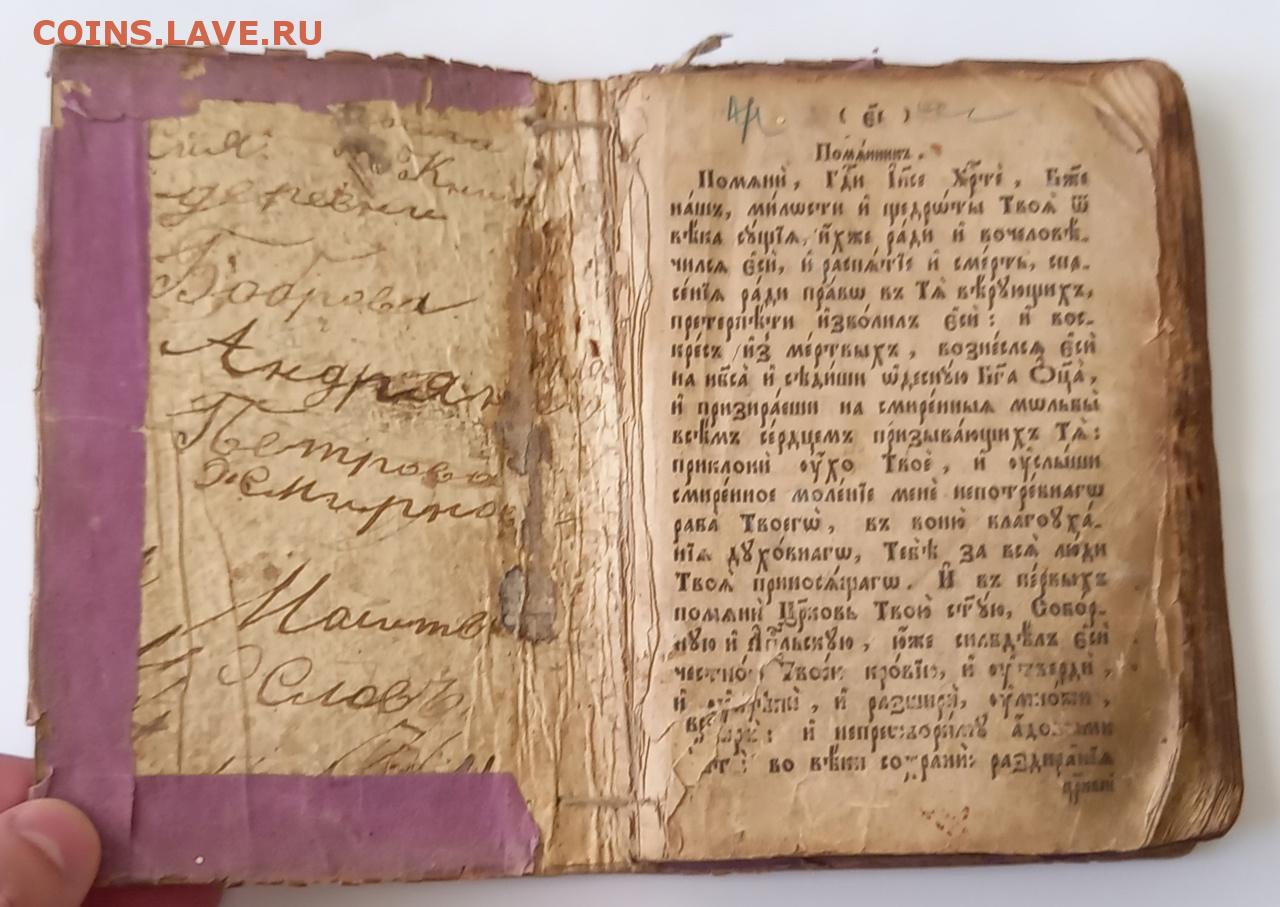 COINS.LAVE.RU
сия Книга
деревни
Боброва
Андрея
Петрова
Смирно
Молитв
Словъ
( є҃і )
Помѧ́нникъ.
Помѧнѝ, Гдⷭ҇и І҆и҃се Хрⷭ҇тѐ, Бж҃е
на́шъ, ми́лѡсти и҆ щедрѡ́ты Твоѧ̑ ѿ
вѣ́ка сꙋ́щыѧ, и҆́хже ра́ди и҆ вочеловѣ́-
чилсѧ є҆сѝ, и҆ распѧ́тїе и҆ сме́рть, спа-
се́нїѧ ра́ди пра́вѡ въ Тѧ̀ вѣ́рꙋющихъ,
претерпѣ́ти и҆зво́лилъ є҆сѝ: и҆ вос-
кре́съ и҆з̾ ме́ртвыхъ, возне́слсѧ є҆сѝ
на нб҃са̀ и҆ сѣди́ши ѡ҆деснꙋ́ю Бг҃а Ѻ҆ц҃а̀,
и҆ призира́еши на смирє́нныѧ мѡльбы̀
всѣ́мъ се́рдцемъ призыва́ющихъ Тѧ̀:
приклонѝ ᲂу҆́хо Твоѐ, и҆ ᲂу҆слы́ши
смире́нное моле́нїе менѐ непотре́бнагѡ
раба̀ Твоегѡ̀, въ воню̀ благоꙋха́-
нїѧ дꙋхо́внагѡ, Тебѣ̀ за всѧ̑ лю́ди
Твоѧ̑ приносѧ́щагѡ. И҆ въ пе́рвыхъ
помѧнѝ Цр҃ковь Твою̀ ст҃ꙋ́ю, Собо́р-
нꙋю и҆ А҆пⷭ҇льскꙋю, ю҆́же снабдѣ́лъ є҆сѝ
честно́ю Твоє́ю кро́вїю, и҆ ᲂу҆твердѝ,
и҆ ᲂу҆крѣпѝ, и҆ разширѝ, ᲂу҆мно́жи,
и҆ непрею́бори́мꙋ а҆́довыми
во вѣ́ки сохранѝ: раздира̑нїѧ
цр҃кве́й